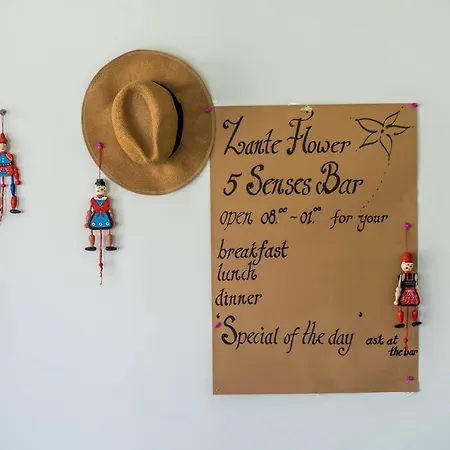 Zante Flower
5 Senses Bar
open 08.⁰⁰ ~ 01.⁰⁰ for your
breakfast
lunch
dinner
'Special of the day' ask at
the bar